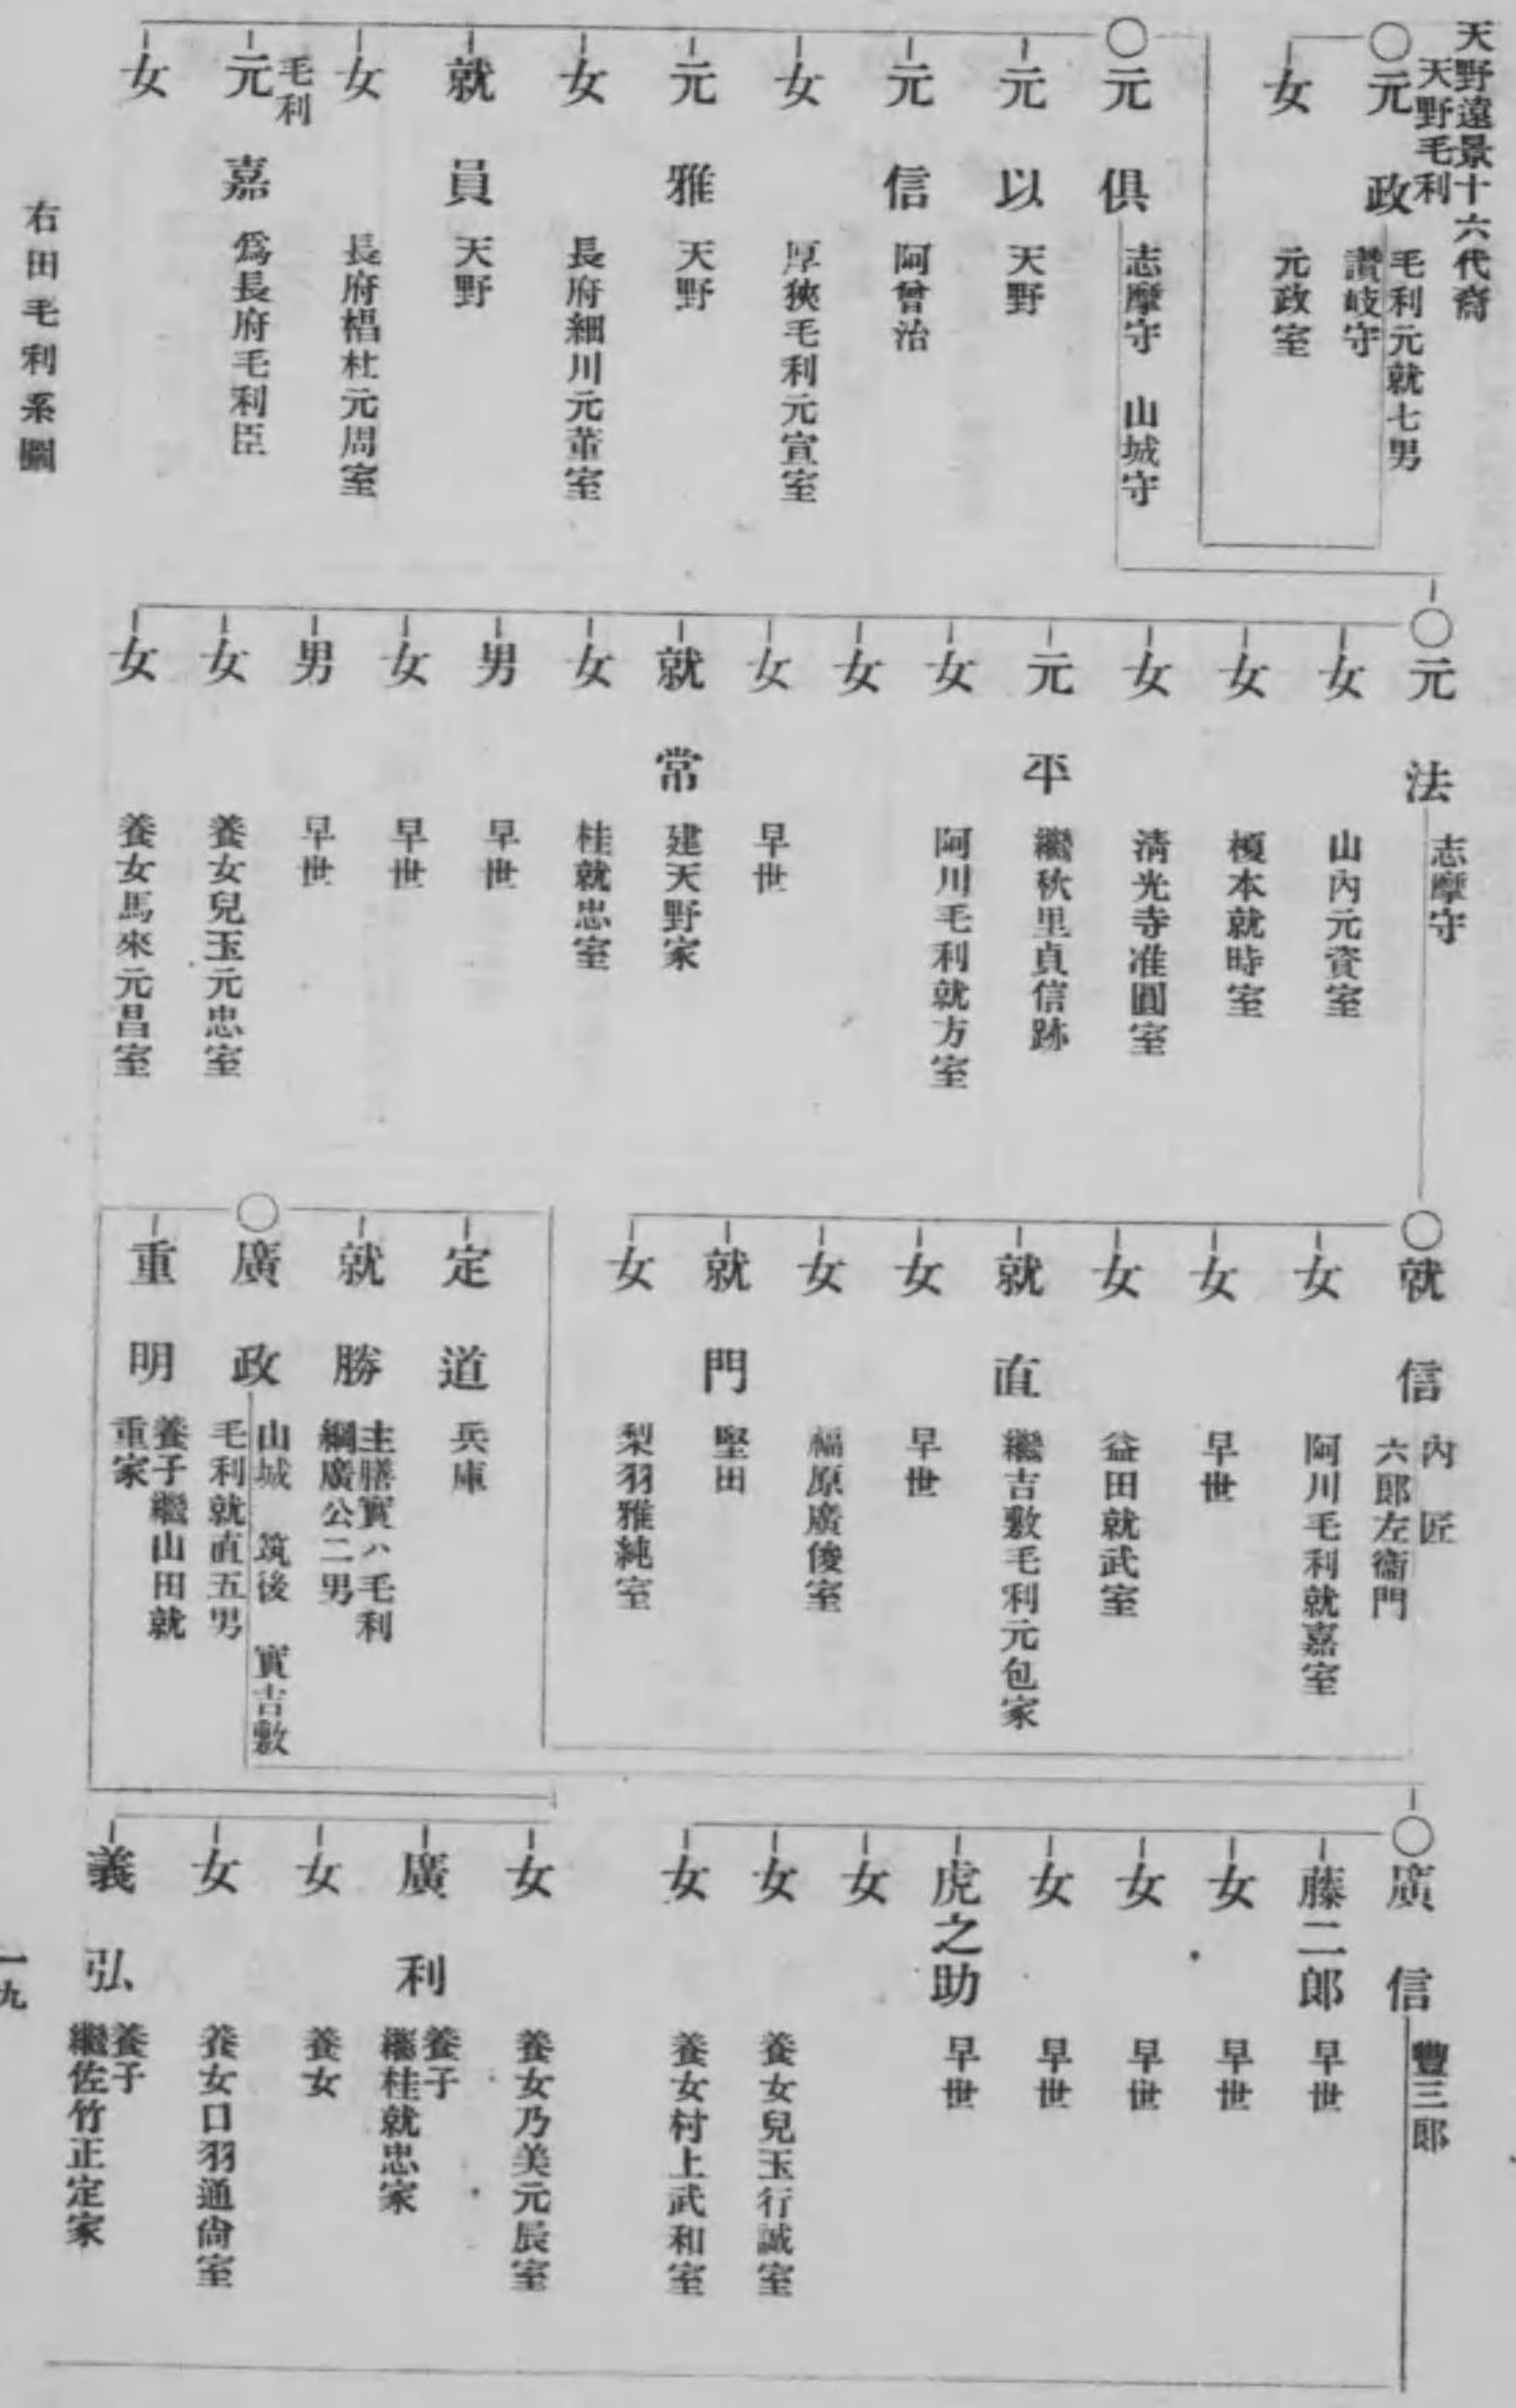 天野遠景十六代裔
天野毛利
〇元政 毛利元就七男
讃岐守
女 元政室
〇元俱 志摩守 山城守
元以 天野
元信 阿曾治
女 厚狹毛利元宣室
元雅 天野
女 長府細川元董室
就員 天野
女 長府椙杜元周室
毛利
元嘉 爲長府毛利臣
女
〇元法 志摩守
女 山內元資室
女 榎本就時室
女 淸光寺准圓室
元平 繼秋里貞信跡
女 阿川毛利就方室
女
女 早世
就常 建天野家
女 桂就忠室
男 早世
女 早世
男 早世
女 養女兒玉元忠室
女 養女馬來元昌室
〇就信 內匠
六郞左衞門
女 阿川毛利就嘉室
女 早世
女 益田就武室
就直 繼吉敷毛利元包家
女 早世
女 福原廣俊室
就門 堅田
女 梨羽雅純室
定道 兵庫
就勝 主膳實ハ毛利
綱廣公二男
〇廣政 山城 筑後 實吉敷
毛利就直五男
重明 養子繼山田就
重家
〇廣信 豐三郞
藤二郎 早世
女 早世
女 早世
女 早世
虎之助 早世
女
女 養女兒玉行誠室
女 養女村上武和室
女 養女乃美元辰室
廣利 養子
繼桂就忠家
女 養女
女 養女口羽通尙室
義弘 養子
繼佐竹正定家
右田毛利系圖
一九